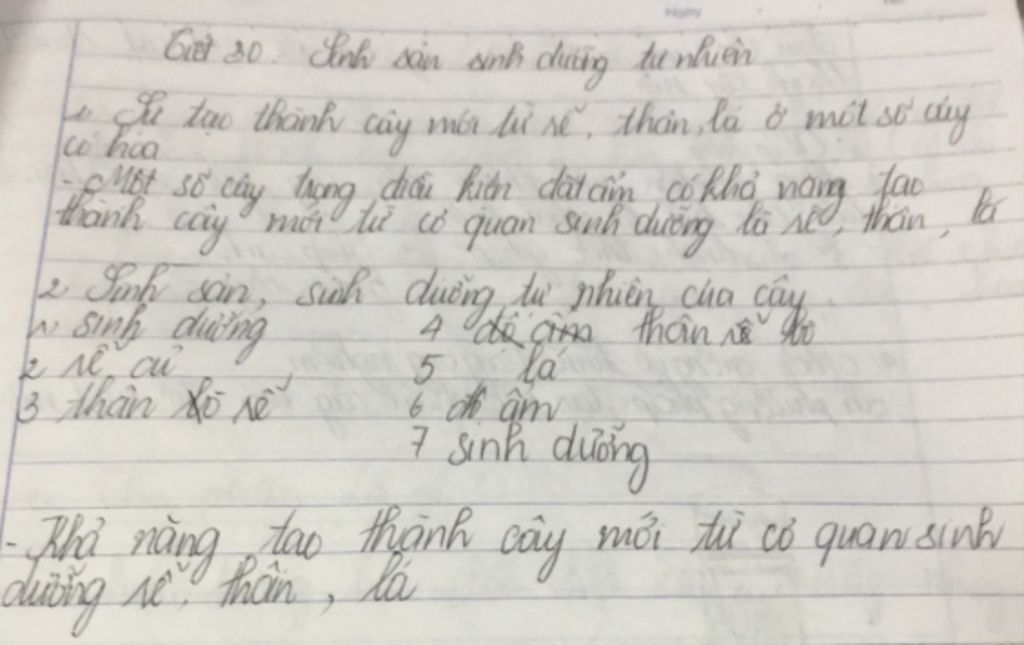 Tiết 30. Sinh sản sinh dưỡng tự nhiên
1. Sự tạo thành cây mới từ rễ, thân, lá ở một số cây
có hoa
- Một số cây trong điều kiện đất ẩm có khả năng tạo
thành cây mới từ cơ quan sinh dưỡng là rễ, thân, lá
2 Sinh sản, sinh dưỡng tự nhiên của cây
1 sinh dưỡng 4 thân rễ
2 rễ củ 5 lá
3 thân bò rễ 6 độ ẩm
7 sinh dưỡng
- Khả năng tạo thành cây mới từ cơ quan sinh
dưỡng rễ, thân, lá